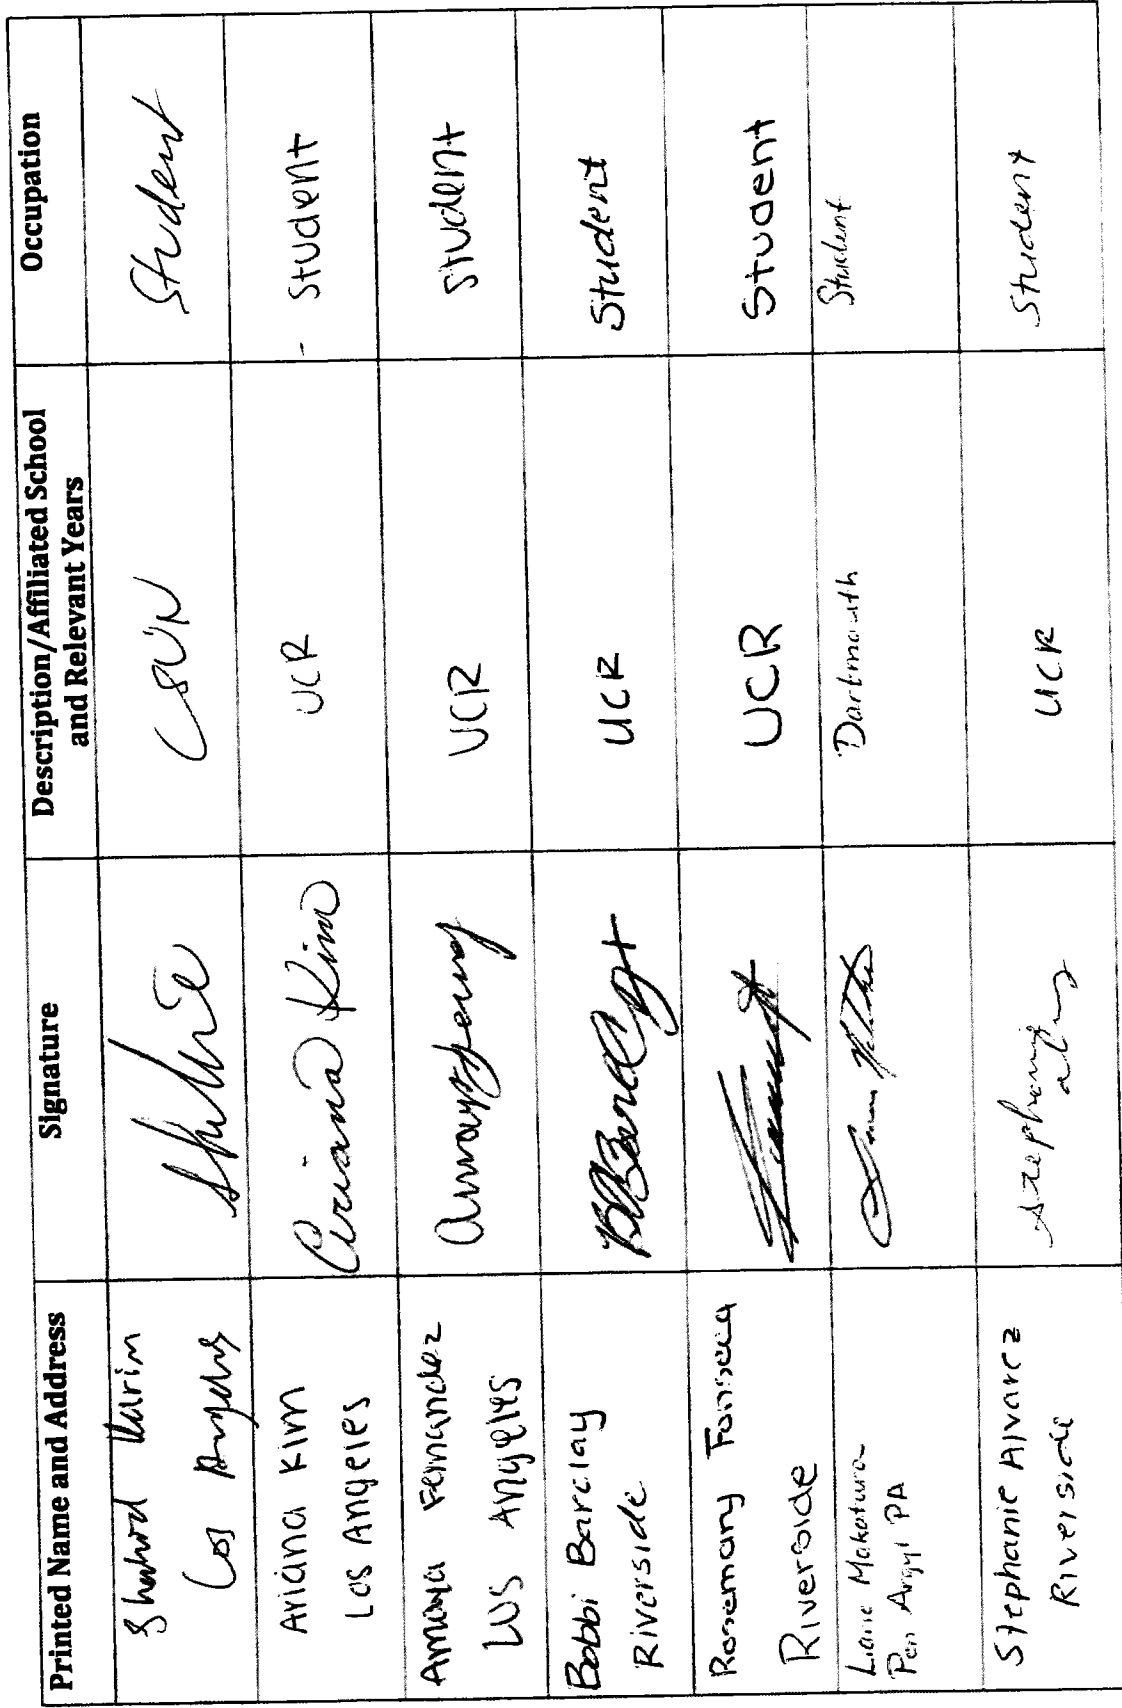 Printed Name and Address Signature Description/Affiliated School and Relevant Years Occupation
Karim Los Angeles CSUN Student
Ariana Kim Los Angeles Ariana Kim UCR - Student
Amaya Fernandez Los Angeles UCR Student
Bobbi Barclay Riverside UCR Student
Rosemary Fonseca Riverside UCR Student
Makatura Pen Argyl PA Dartmouth Student
Stephanie Alvarez Riverside Stephanie UCR Student